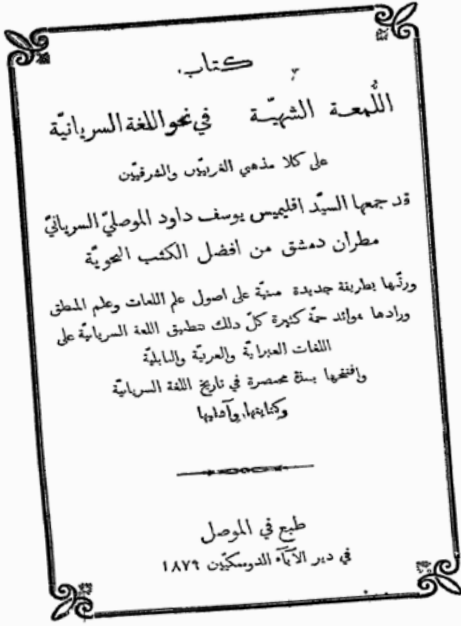 كتاب.
اللُّمعة الشهيّة في نحو اللغة السريانيّة
على كلا مذهبي الغربيّين والشرقيّين
قد جمعها السيّد اقليميس يوسف داود الموصليّ السريانيّ
مطران دمشق من افضل الكتب النحويّة
ورتّبها بطريقة جديدة مبنيّة على اصول علم اللغات وعلم المنطق
وزادها فوائد جمّة كثيرة كلّ ذلك بتطبيق اللغة السريانيّة على
اللغات العبرانيّة والعربيّة والبابليّة
وافتتحها بنبذة مختصرة في تاريخ اللغة السريانيّة
وكتابتها وآدابها
طبع في الموصل
في دير الآباء الدومنكيّين ١٨٧٩